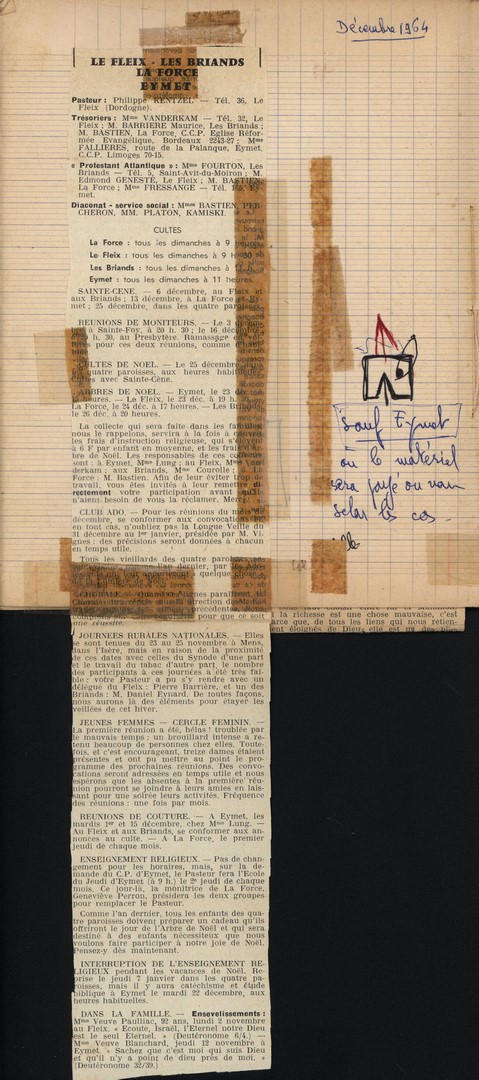 Décembre 1964
LE FLEIX - LES BRIANDS
LA FORCE
EYMET
Pasteur : Philippe RENTZEL — Tél. 36, Le
Fleix (Dordogne).
Trésoriers : Mme VANDERKAM — Tél. 32, Le
Fleix ; M. BARRIERE Maurice, Les Briands ;
M. BASTIEN, La Force, C.C.P. Eglise Réfor-
mée Evangélique, Bordeaux 2243-27 ; Mme
FALLIERES, route de la Palanque, Eymet,
C.C.P. Limoges 70-15.
« Protestant Atlantique » : Mme FOURTON, Les
Briands — Tél. 5, Saint-Avit-du-Moiron ; M.
Edmond GENESTE, Le Fleix ; M. BASTIEN,
La Force ; Mme FRESSANGE — Tél.
met.
Diaconat - service social : Mmes BASTIEN, PER-
CHERON, MM. PLATON, KAMISKI.
CULTES
La Force : tous les dimanches à 9
Le Fleix : tous les dimanches à 9 h 30
Les Briands : tous les dimanches à
Eymet : tous les dimanches à 11 heures.
SAINTE-CENE. — 6 décembre, au Fleix et
aux Briands ; 13 décembre, à La Force et Ey-
met ; 25 décembre, dans les quatre paroisses.
REUNIONS DE MONITEURS. — Le 3
à Sainte-Foy, à 20 h. 30 ; le 16
h. 30, au Presbytère. Ramassage
pour ces deux réunions, comme
CULTES DE NOEL. — Le 25 décembre
quatre paroisses, aux heures
avec Sainte-Cène.
ARBRES DE NOEL. — Eymet, le 23
heures. — Le Fleix, le 23 déc. à 19 h.
La Force, le 24 déc. à 17 heures. — Les Briands,
le 26 déc. à 20 heures.
La collecte qui sera faite dans les familles
nous le rappelons, servira à la fois à couvrir
les frais d'instruction religieuse, qui s'élèvent
à 6 F par enfant en moyenne, et les frais
bre de Noël. Les responsables de ces
sont : à Eymet, Mme Lung ; au Fleix, Mme
derkam ; aux Briands, Mme Courolle ; à
Force : M. Bastien. Afin de leur éviter trop
travail, vous êtes invités à leur remettre di-
rectement votre participation avant qu'ils
n'aient besoin de vous la réclamer. Merci
CLUB ADO. — Pour les réunions du mois
décembre, se conformer aux convocations.
en tout cas, n'oubliez pas la Longue Veille du
31 décembre au 1er janvier, présidée par M. Vi-
gnes : des précisions seront données à chacun
en temps utile.
Tous les vieillards des quatre
CHORALE.
JOURNEES RURALES NATIONALES. — Elles
se sont tenues du 23 au 25 novembre à Mens,
dans l'Isère, mais en raison de la proximité
de ces dates avec celles du Synode d'une part
et le travail du tabac d'autre part, le nombre
des participants à ces journées a été très fai-
ble : votre Pasteur a pu s'y rendre avec un
délégué du Fleix : Pierre Barrière, et un des
Briands : M. Daniel Eynard. De toutes façons,
nous aurons là des éléments pour étayer les
veillées de cet hiver.
JEUNES FEMMES — CERCLE FEMININ. —
La première réunion a été, hélas ! troublée par
le mauvais temps : un brouillard intense a re-
tenu beaucoup de personnes chez elles. Toute-
fois, et c'est encourageant, treize dames étaient
présentes et ont pu mettre au point le pro-
gramme des prochaines réunions. Des convo-
cations seront adressées en temps utile et nous
espérons que les absentes à la première réu-
nion pourront se joindre à leurs amies en lais-
sant pour une soirée leurs activités. Fréquence
des réunions : une fois par mois.
REUNIONS DE COUTURE. — A Eymet, les
mardis 1er et 15 décembre, chez Mme Lung. —
Au Fleix et aux Briands, se conformer aux an-
nonces au culte. — A La Force, le premier
jeudi de chaque mois.
ENSEIGNEMENT RELIGIEUX. — Pas de chan-
gement pour les horaires, mais, sur la de-
mande du C.P. d'Eymet, le Pasteur fera l'Ecole
du Jeudi d'Eymet (à 9 h.) le 2e jeudi de chaque
mois. Ce jour-là, la monitrice de La Force,
Geneviève Perron, présidera les deux groupes
pour remplacer le Pasteur.
Comme l'an dernier, tous les enfants des qua-
tre paroisses doivent préparer un cadeau qu'ils
offriront le jour de l'Arbre de Noël et qui sera
destiné à des enfants nécessiteux que nous
voulons faire participer à notre joie de Noël.
Pensez-y dès maintenant.
INTERRUPTION DE L'ENSEIGNEMENT RE-
LIGIEUX pendant les vacances de Noël. Re-
prise le jeudi 7 janvier dans les quatre pa-
roisses, mais il y aura catéchisme et étude
biblique à Eymet le mardi 22 décembre, aux
heures habituelles.
DANS LA FAMILLE. — Ensevelissements :
Mme Veuve Pauillac, 92 ans, lundi 2 novembre
au Fleix. « Ecoute, Israël, l'Eternel notre Dieu
est le seul Eternel. » (Deutéronome 6/4.) —
Mme Veuve Blanchard, jeudi 12 novembre à
Eymet. « Sachez que c'est moi qui suis Dieu
et qu'il n'y a point de dieu près de moi. »
(Deutéronome 32/39.)
Sauf Eymet
où le matériel
sera payé ou non
selon les cas.
la richesse est une chose mauvaise, c'est
parce que, de tous les liens qui nous retien-
nent éloignés de Dieu, elle est un des plus